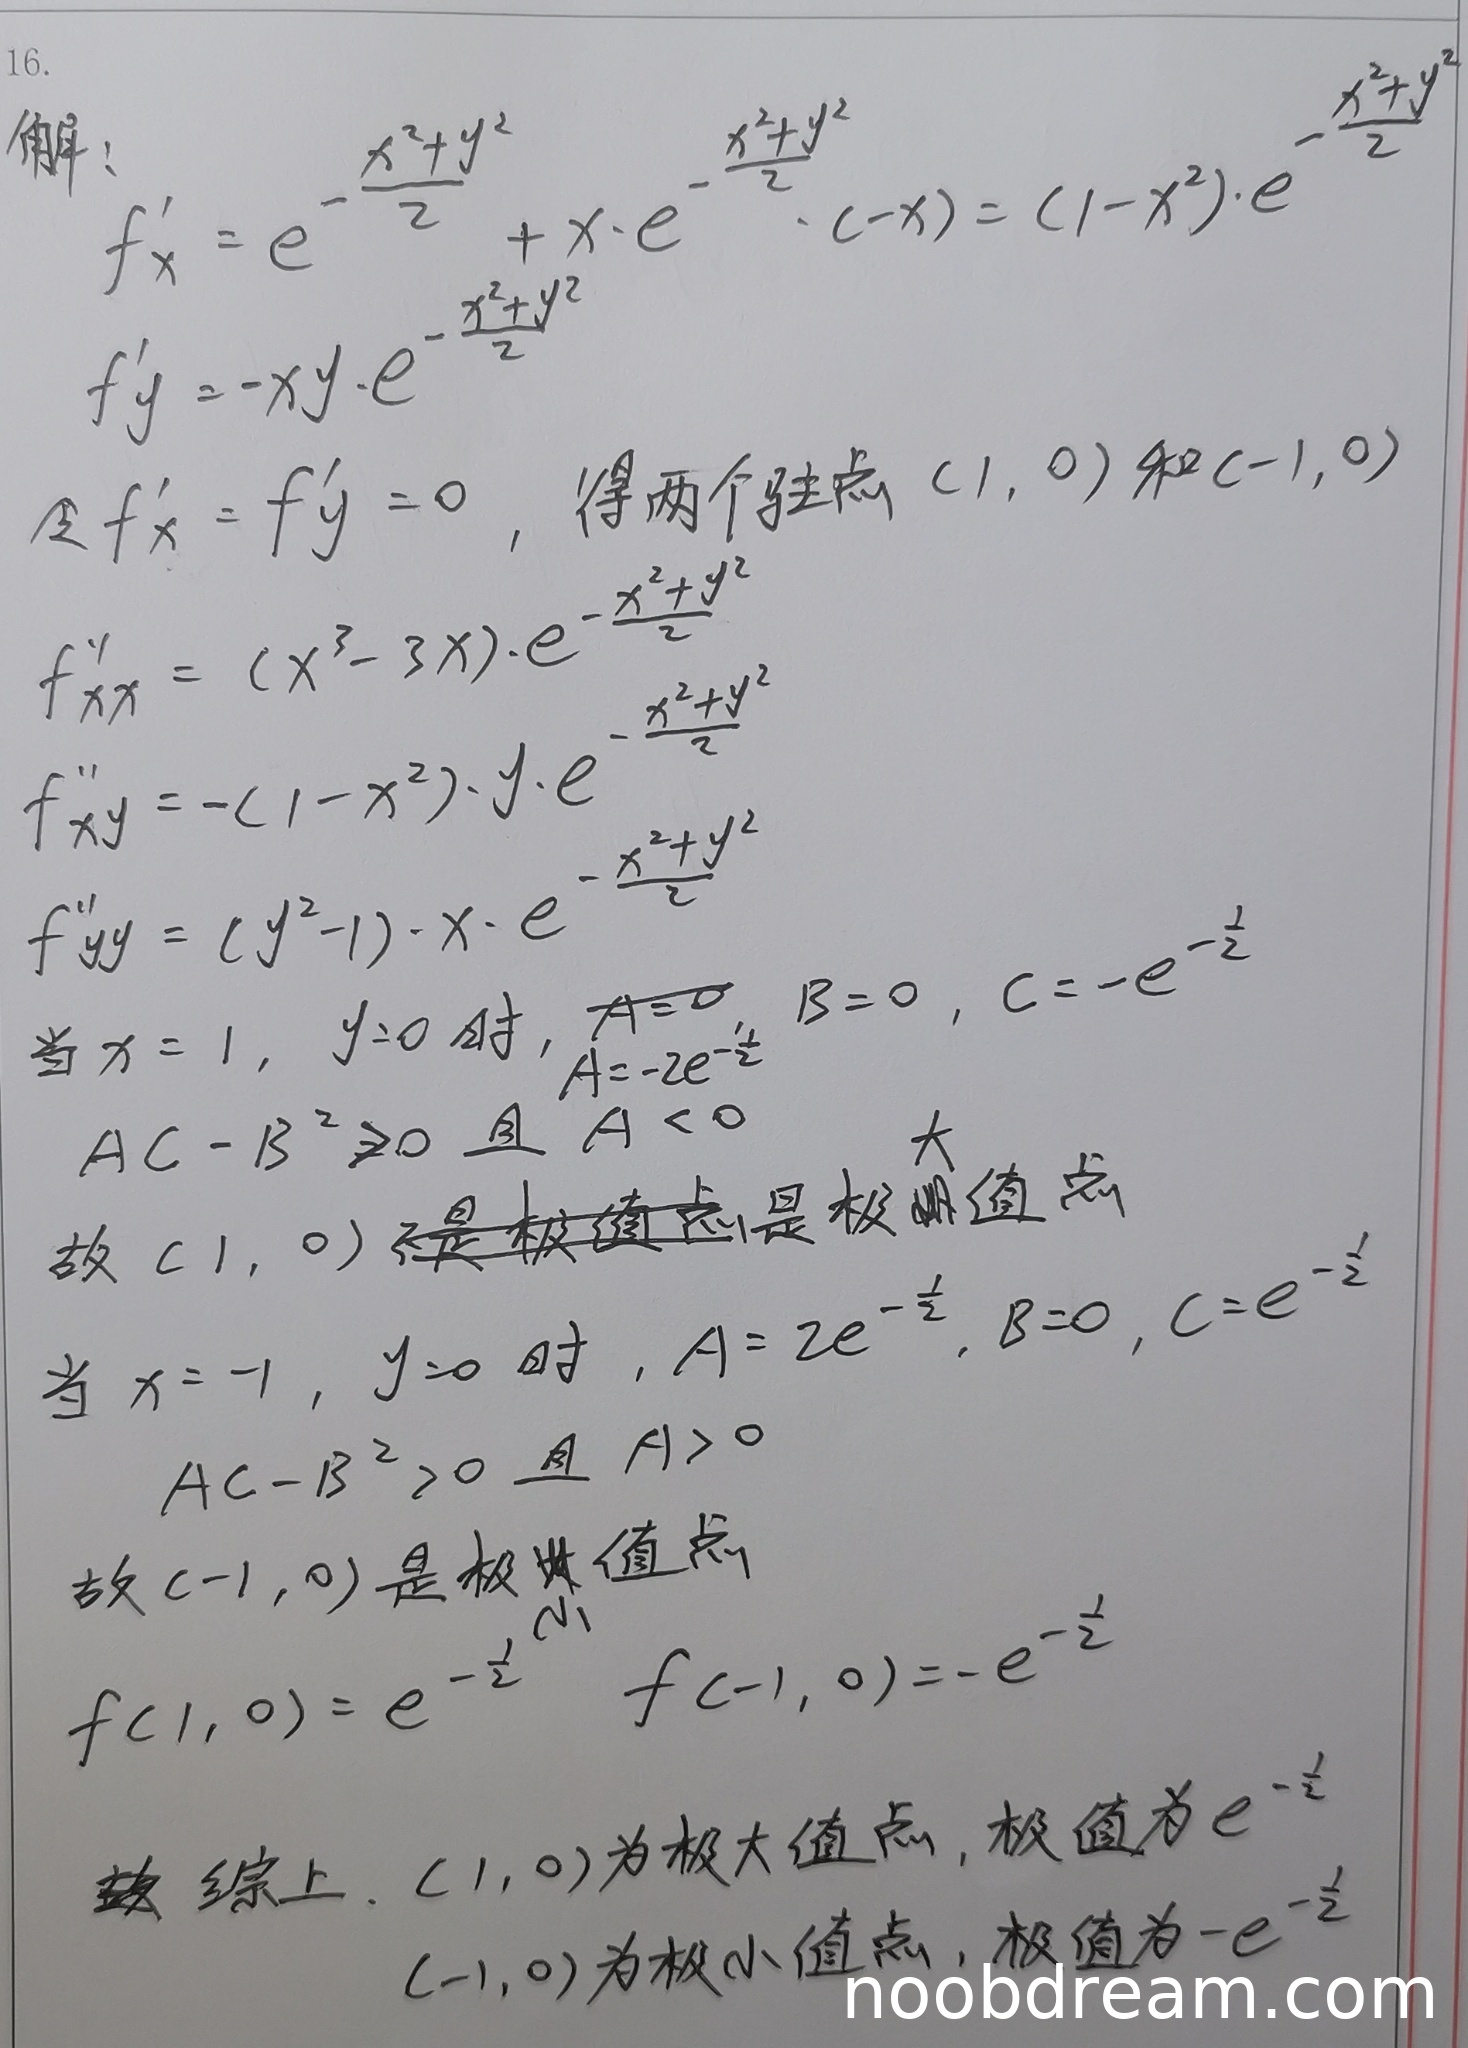 16.
解:
f'x = e^{-\frac{x^2+y^2}{2}} + x·e^{-\frac{x^2+y^2}{2}}·(-x) = (1-x^2)·e^{-\frac{x^2+y^2}{2}}
f'y = -xy·e^{-\frac{x^2+y^2}{2}}
令 f'x = f'y = 0 , 得两个驻点 (1, 0) 和 (-1, 0)
f''xx = (x^3-3x)·e^{-\frac{x^2+y^2}{2}}
f''xy = -(1-x^2)·y·e^{-\frac{x^2+y^2}{2}}
f''yy = (y^2-1)·x·e^{-\frac{x^2+y^2}{2}}
当 x = 1, y=0 时, A=0, B=0, C=-e^{-\frac{1}{2}}
A=-2e^{-\frac{1}{2}}
AC-B^2>0 且 A<0
故 (1, 0) 不是极值点是极大值点
当 x=-1, y=0 时, A=2e^{-\frac{1}{2}}, B=0, C=e^{-\frac{1}{2}}
AC-B^2>0 且 A>0
故 (-1, 0) 是极小值点
f(1, 0) = e^{-\frac{1}{2}} f(-1, 0) = -e^{-\frac{1}{2}}
综上. (1, 0) 为极大值点, 极值为 e^{-\frac{1}{2}}
(-1, 0) 为极小值点, 极值为 -e^{-\frac{1}{2}}
noobdream.com